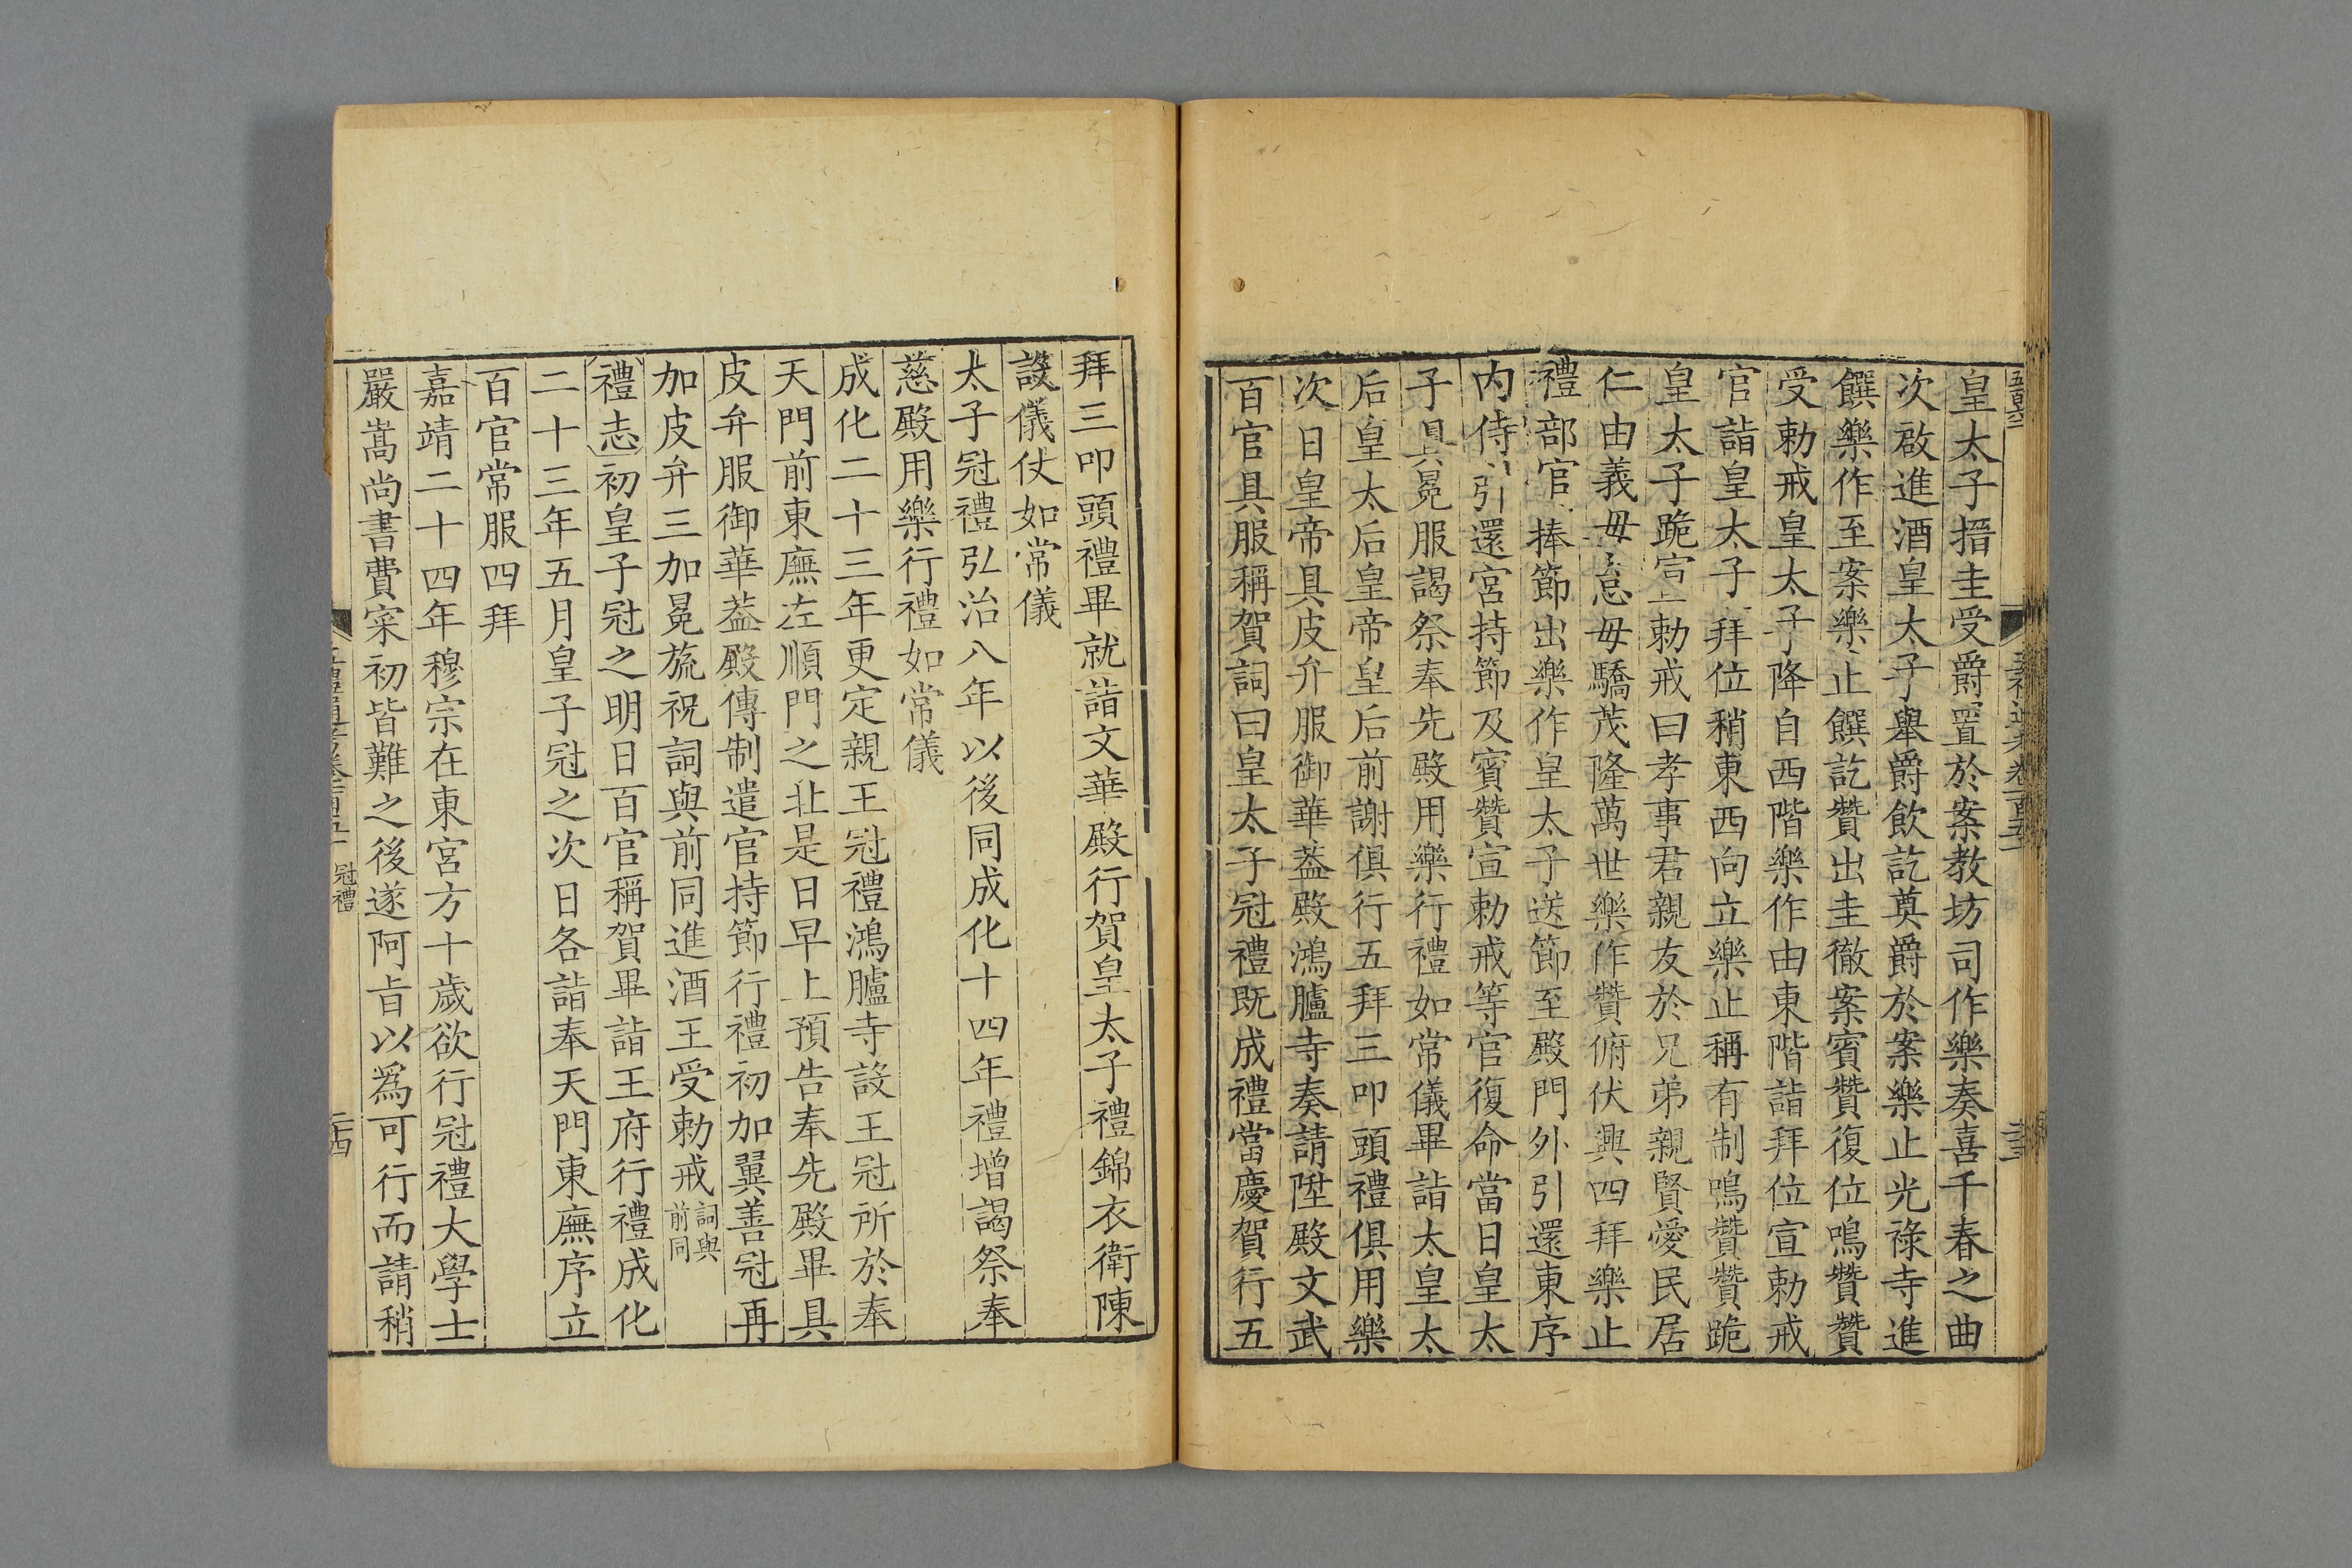 皇太子搢圭受爵置於案教坊司作樂奏喜千春之曲
次啟進酒皇太子舉爵飲訖奠爵於案樂止光祿寺進
饌樂作至案樂止饌訖贊出圭徹案賓贊復位鳴贊贊
受勅戒皇太子降自西階樂作由東階詣拜位宣勅戒
官詣皇太子拜位稍東西向立樂止稱有制鳴贊贊跪
皇太子跪宣勅戒曰孝事君親友於兄弟親賢愛民居
仁由義毋怠毋驕茂隆萬世樂作贊俯伏興四拜樂止
禮部官捧節出樂作皇太子送節至殿門外引還東序
内侍引還宮持節及賓贊宣勅戒等官復命當日皇太
子具冕服謁祭奉先殿用樂行禮如常儀畢詣太皇太
后皇太后皇帝皇后前謝俱行五拜三叩頭禮俱用樂
次日皇帝具皮弁服御華葢殿鴻臚寺奏請陞殿文武
百官具服稱賀詞曰皇太子冠禮既成禮當慶賀行五
拜三叩頭禮畢就詣文華殿行賀皇太子禮錦衣衛陳
設儀仗如常儀
太子冠禮弘治八年以後同成化十四年禮增謁祭奉
慈殿用樂行禮如常儀
成化二十三年更定親王冠禮鴻臚寺設王冠所於奉
天門前東廡左順門之北是日早上預告奉先殿畢具
皮弁服御華葢殿傳制遣官持節行禮初加翼善冠再
加皮弁三加冕旒祝詞與前同進酒王受勅戒詞與前同
禮志初皇子冠之明日百官稱賀畢詣王府行禮成化
二十三年五月皇子冠之次日各詣奉天門東廡序立
百官常服四拜
嘉靖二十四年穆宗在東宮方十歲欲行冠禮大學士
嚴嵩尚書費寀初皆難之後遂阿旨以爲可行而請稍
冠禮
二十四